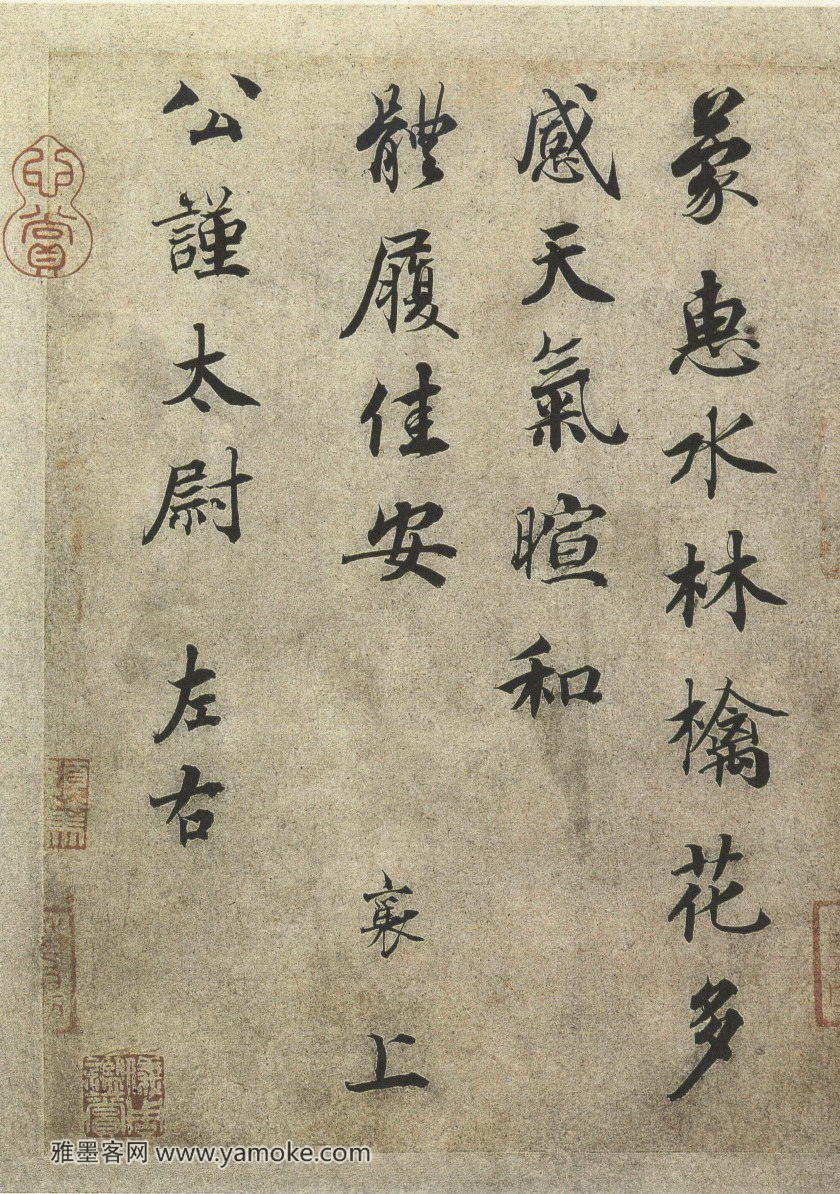 蒙惠水林檎花多
感天氣暄和
體履佳安 襄上
公謹太尉 左右
心賞
雅墨客网 www.yamoke.com